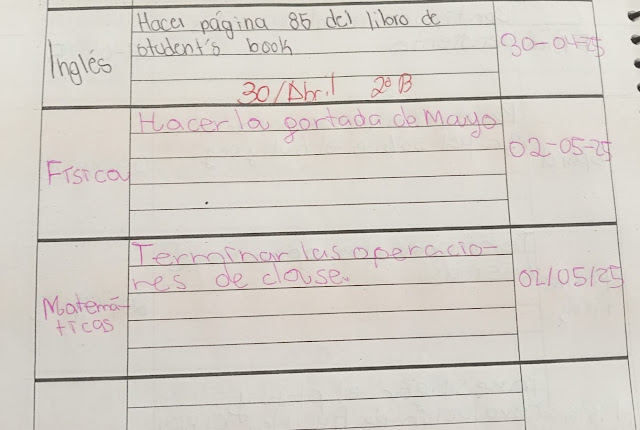 Hacer página 85 del libro de
student's book
Inglés
30-04-25
30/Abril 2º B
Hacer la portada de Mayo
Física
02-05-25
Terminar las operacio-
nes de clase.
Matemá-
ticas
02/05/25